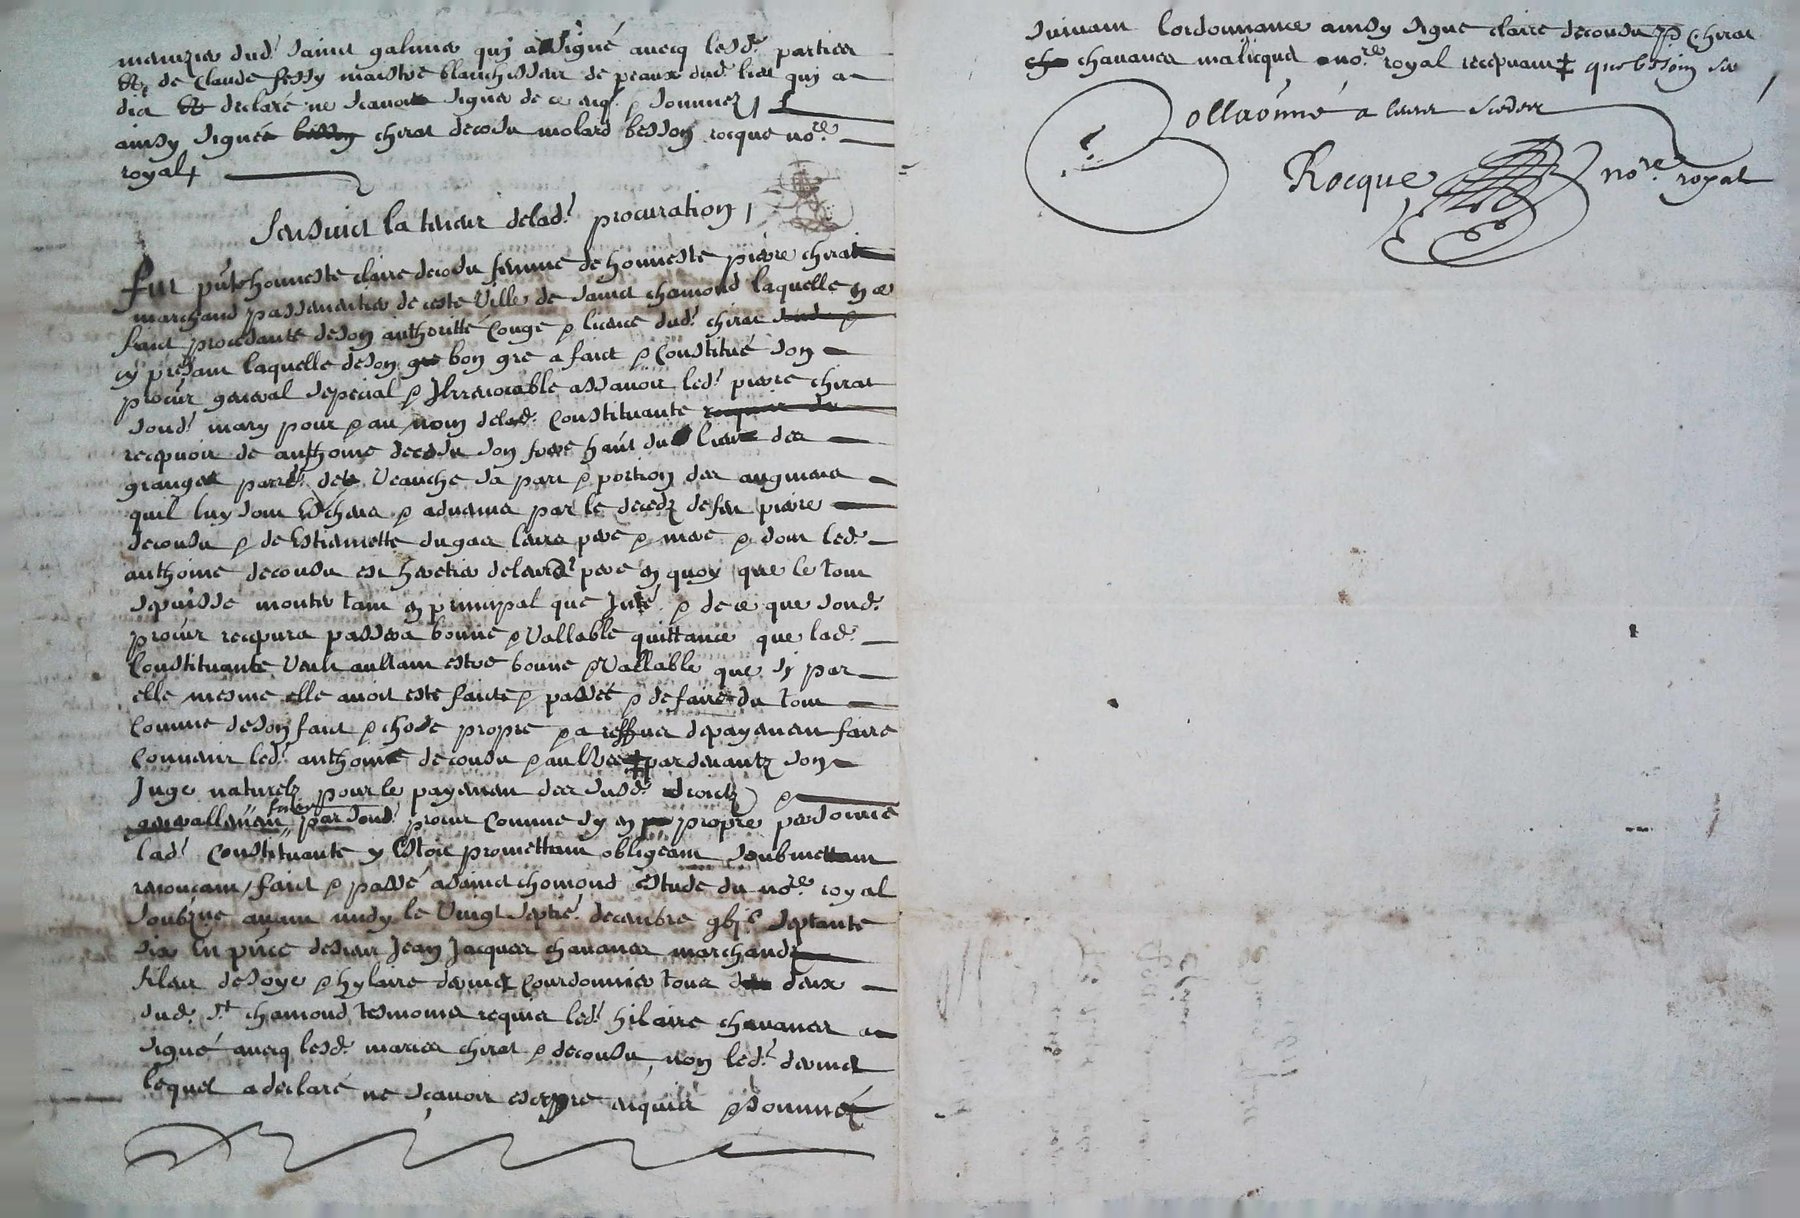 menuzier dud. Saint galmier quy a signé avecq lesd. parties
& de Claude fessy maistre blanchisseur de peaux dud. lieu quy a
dict & declaré ne scavoir signer de ce enq. & sommez
ainsy signés chirat decosu molard besson rocque no.re
royal
Sensuict la teneur de lad. procuration
fut pñte honneste claire decosu femme de honneste pierre chirat
marchand passementier de ceste Ville de Sainct chamond laquelle en ce
faict procedante de son authoritté Congé & licence dud. chirat
cy present laquelle de son bon gre a faict & Constitué son
procur general Sepecial & Jrrevocable assavoir led. pierre chirat
sond. mary pour & au nom de lad. Constituante
recepvoir de anthoine decosu son frere hant du lieu des
granges parr. de Veauche sa part & portion des augmens
quil luy sont Escheus & advenus par le decedz de feu pierre
decousu & de Estiennette dugas leurs pere & mere & dont led.
anthoine decousu est heretier de leurd. pere en quoy que le tout
se puisse monter tant en principal que Jnté. & de ce que sond.
procur recepvra passera bonne & Vallable quittance que lad.
Constituante Veult aultant estre bonne & Vallable que sy par
elle mesme elle avoit esté faicte & passée & de faire du tout
Comme de son faict & chose propre & a reffus de payement faire
Convenir led. anthoine decousu & aultres pardevantz son
Juge naturelz pour le payement des susd. droictz &
generallement faire par sond. procur Comme sy en propre personne
lad. Constituante y Estoit promettant obligeant soubmettant
renoncant, faict & passé a Sainct chomond Estude du no.re royal
soubzne avant midy le Vingt septie. decembre gbjc septante
six En pñce de sieur Jean Jacques chavanes marchand
fileur de soye & hylaire dernier Courdonnier tous deux
dud. St chamond tesmoins requis led. chavanes a
signé avecq lesd. maries chirat & decousu, non led. dernier
lequel a declaré ne scavoir escripre enquis & sommé
suivant lordonnance ainsy signe claire decousu p chirat
chavanes malicque no.re royal recepvant que besoin
Collaonné a leur
Rocque no.re royal